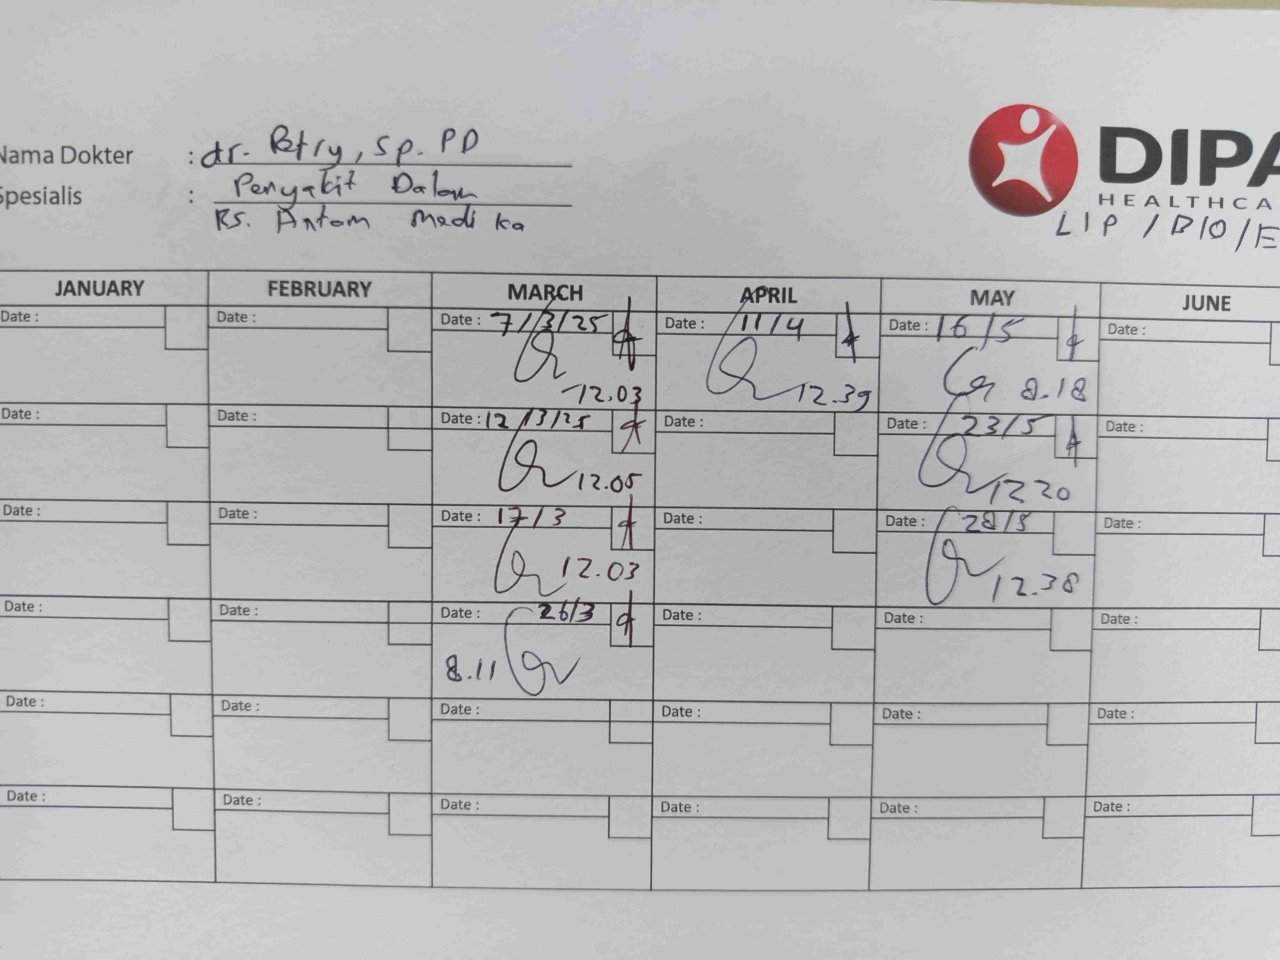 Nama Dokter : dr. Petry, Sp. PD
Spesialis : Penyakit Dalam
RS. Antam Medika
DIPA
HEALTHCA
LIP / BIO / E
JANUARY FEBRUARY MARCH APRIL MAY JUNE
Date : Date : Date : 7/3/25 Date : 11/4 Date : 16/5 Date :
12.03 12.39 8.18
Date : Date : Date : 12/3/25 Date : Date : 23/5 Date :
12.05 12 20
Date : Date : Date : 17/3 Date : Date : 28/5 Date :
12.03 12.38
Date : Date : Date : 26/3 Date : Date : Date :
8.11
Date : Date : Date : Date : Date : Date :
Date : Date : Date : Date : Date : Date :